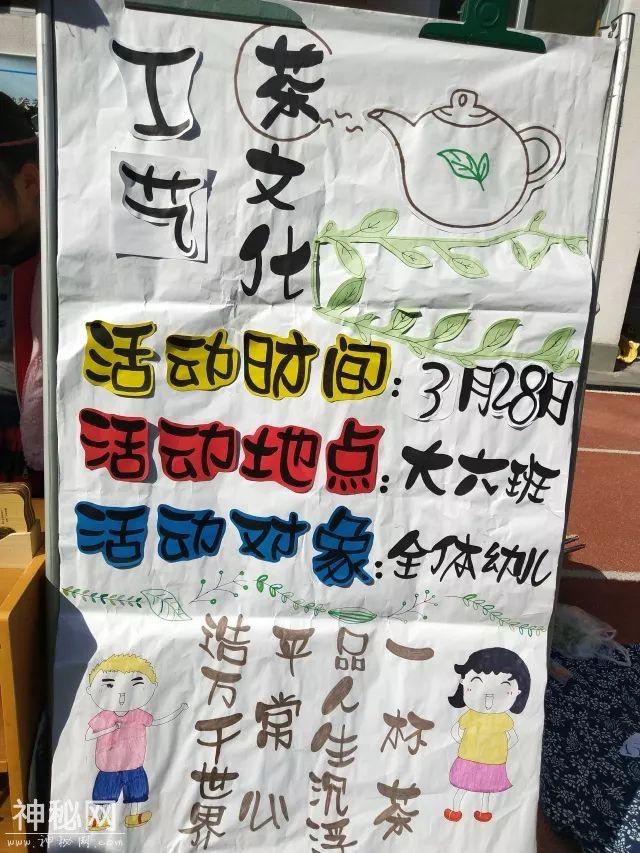 茶文化
工艺
活动时间：3月28日
活动地点：大六班
活动对象：全体幼儿
一杯茶
品人生沉浮
平常心
造万千世界
神秘网
www.神秘网.com